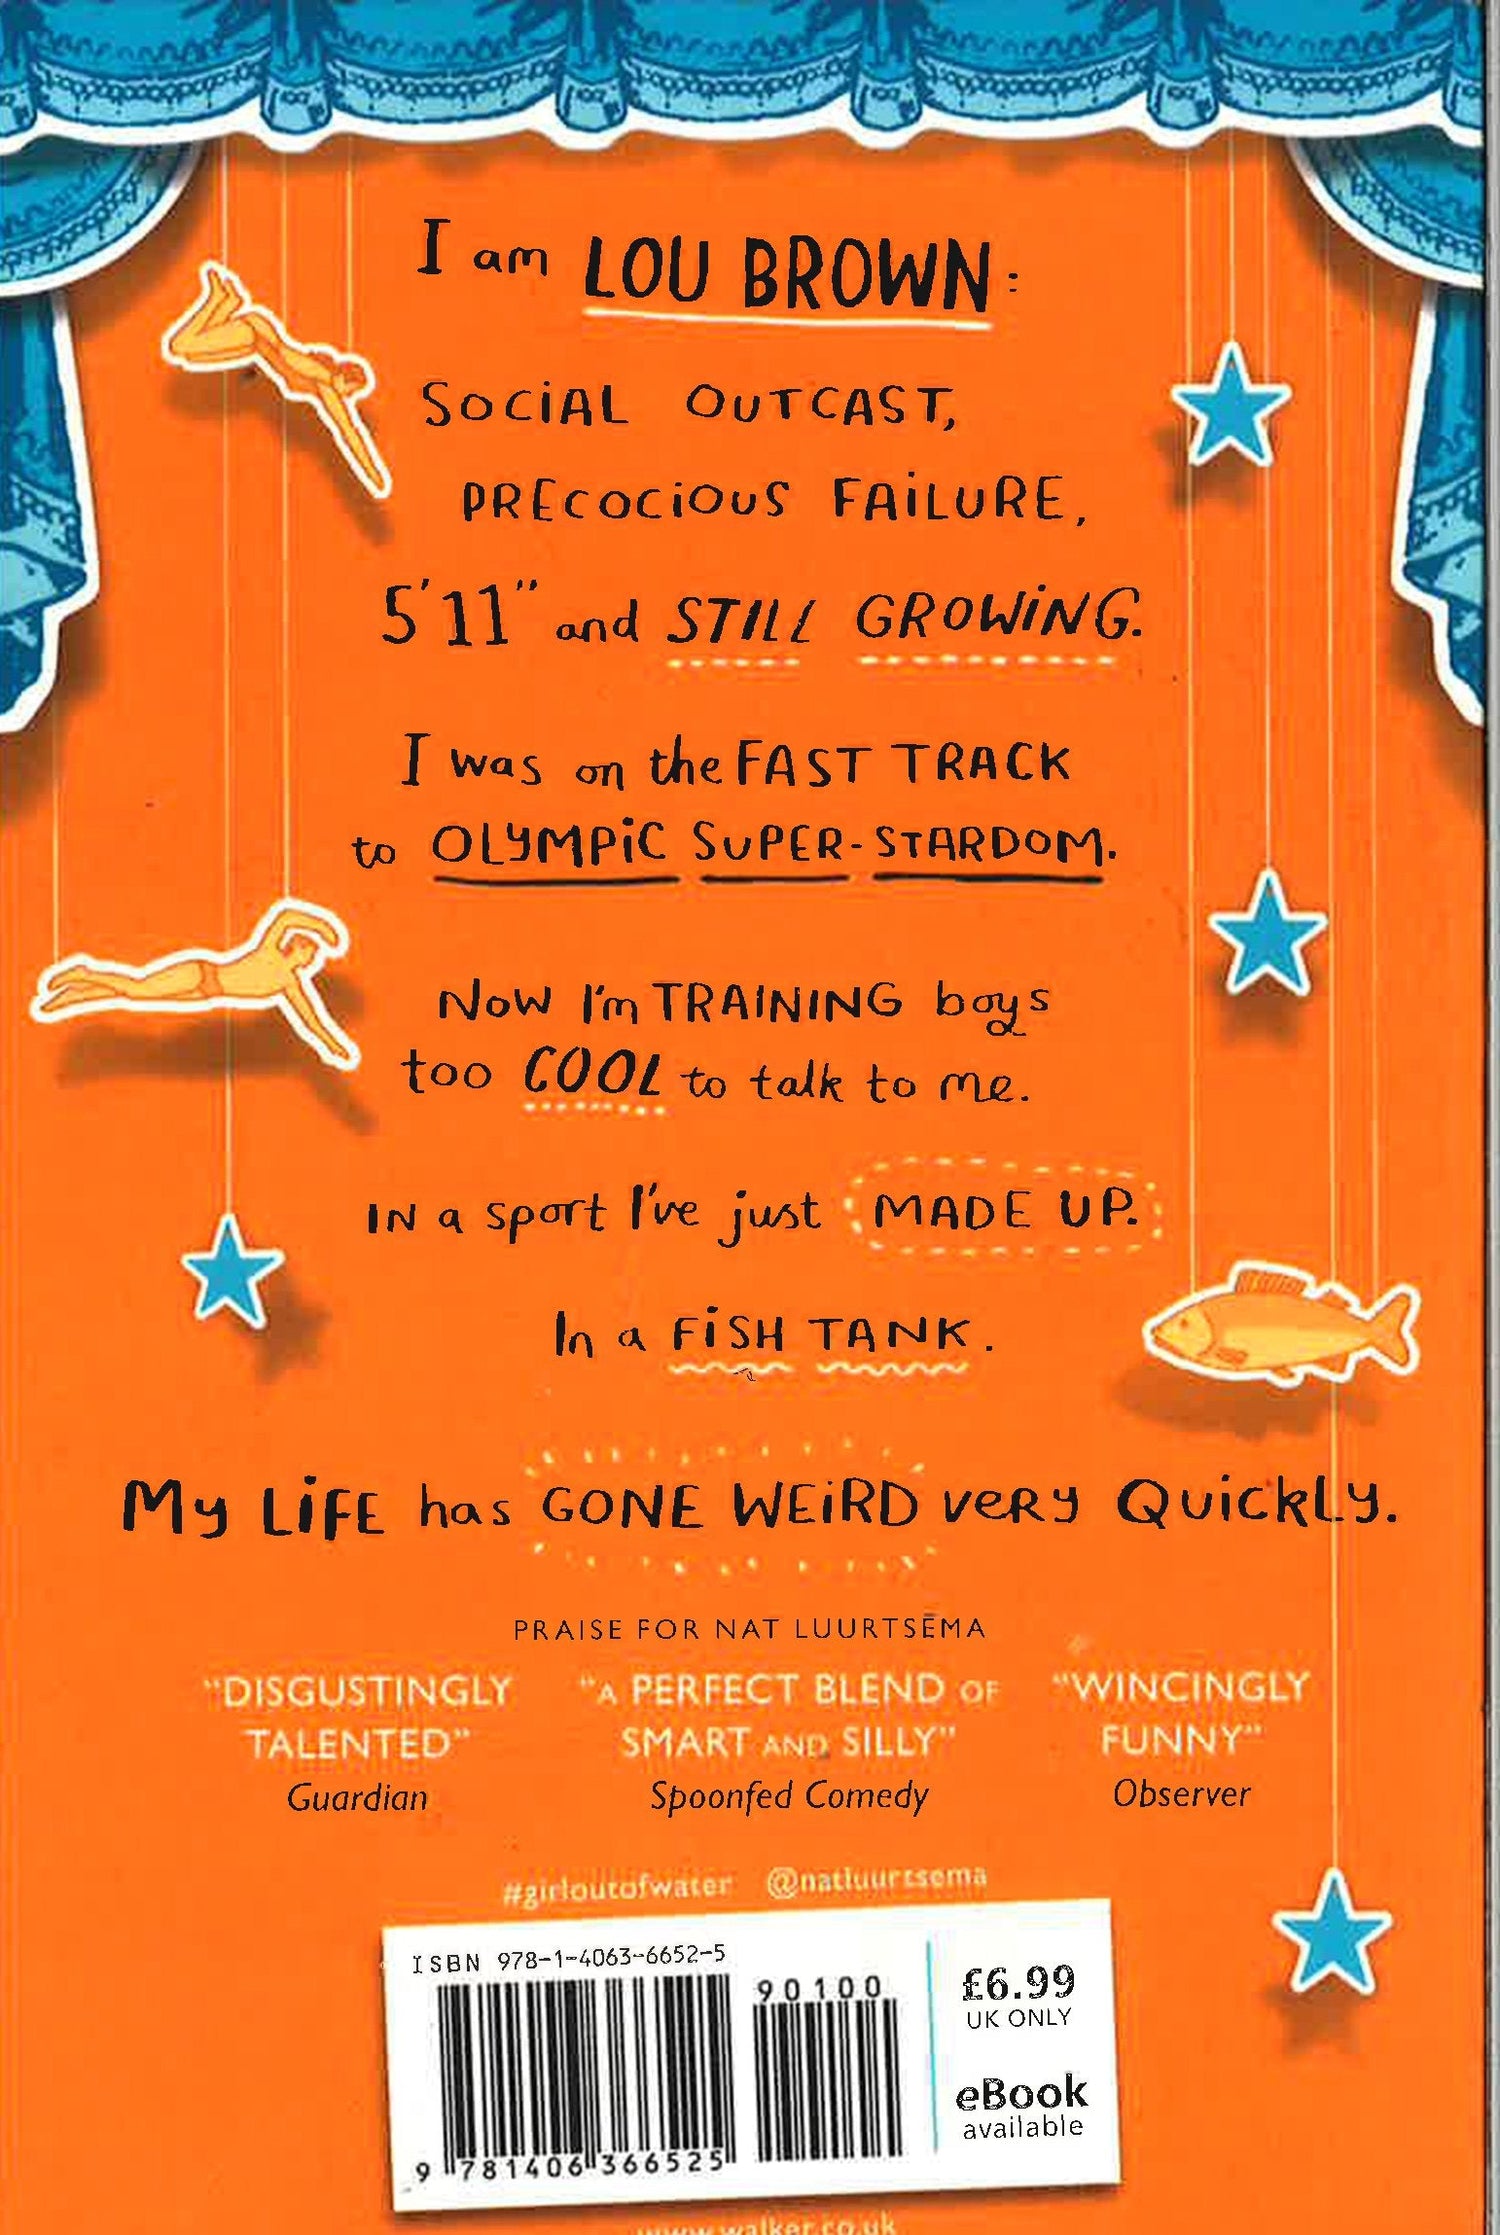 I am LOU BROWN:
SOCiAL OUTCAST,
PRECOCiOUS FAiLURE,
5'11" and STILL GROWiNG.
I was on the FAST TRACK
to OLYMPiC SUPER-STARDOM.
NoW I'm TRAINING boys
too COOL to talk to me.
IN a sport I've just MADE UP.
In a FiSH TANK.
My LiFE has GONE WEiRD veRy QuickLy.
PRAISE FOR NAT LUURTSEMA
"DISGUSTINGLY
TALENTED"
Guardian
"A PERFECT BLEND OF
SMART AND SILLY"
Spoonfed Comedy
"WINCINGLY
FUNNY"
Observer
#girloutofwater @natluurtsema
ISBN 978-1-4063-6652-5
90100
9 781406 366525
£6.99
UK ONLY
eBook
available
www.walker.co.uk